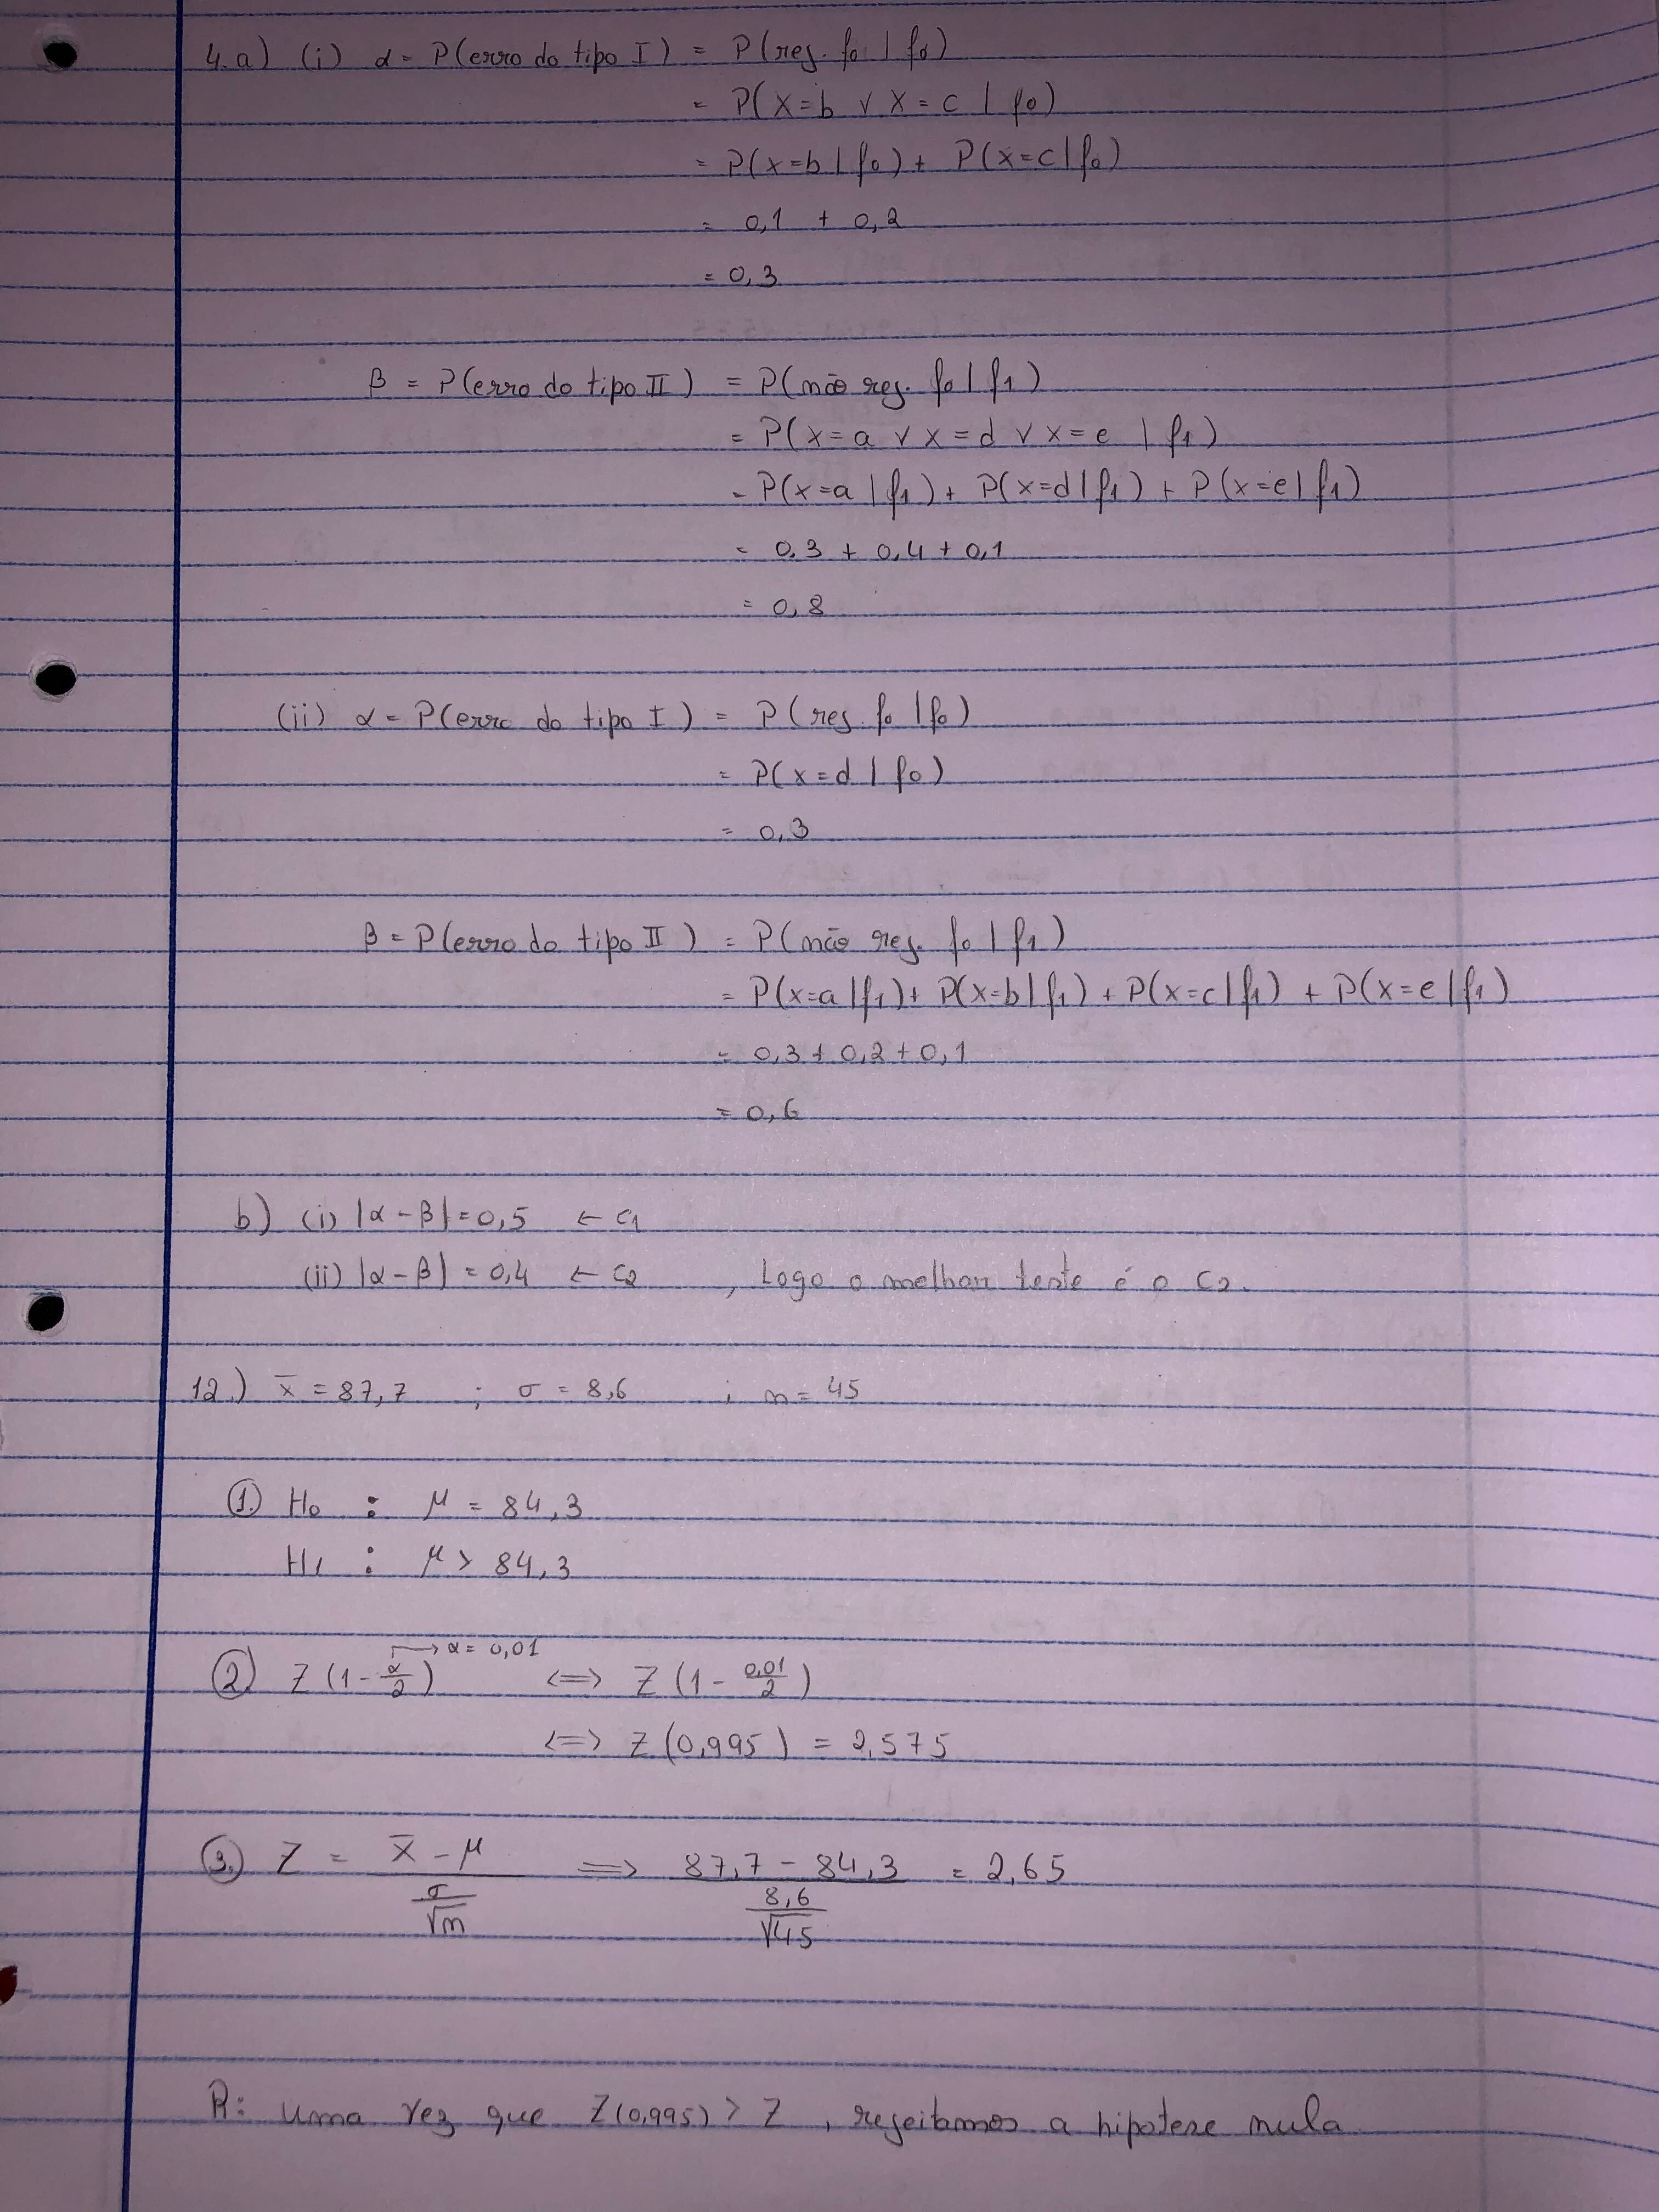 4.a) (i) α = P(erro do tipo I) = P(rej. f₀ | f₀)
= P(X=b ∨ X=c | f₀)
= P(x=b | f₀) + P(x=c | f₀)
= 0,1 + 0,2
= 0,3
β = P(erro do tipo II) = P(não rej. f₀ | f₁)
= P(x=a ∨ x=d ∨ x=e | f₁)
= P(x=a | f₁) + P(x=d | f₁) + P(x=e | f₁)
= 0,3 + 0,4 + 0,1
= 0,8
(ii) α = P(erro do tipo I) = P(rej. f₀ | f₀)
= P(x=d | f₀)
= 0,3
β = P(erro do tipo II) = P(não rej. f₀ | f₁)
= P(x=a | f₁) + P(x=b | f₁) + P(x=c | f₁) + P(x=e | f₁)
= 0,3 + 0,2 + 0,1
= 0,6
b) (i) |α - β| = 0,5 ← C₁
(ii) |α - β| = 0,4 ← C₂ , Logo o melhor teste é o C₂.
12.) x̄ = 87,7 ; σ = 8,6 ; n = 45
①. H₀ : μ = 84,3
H₁ : μ > 84,3
② Z(1 - α/2) → α = 0,01 ⟺ Z(1 - 0,01/2)
⟺ Z(0,995) = 2,575
③. Z = (x̄ - μ)/(σ/√n) ⟹ (87,7 - 84,3)/(8,6/√45) = 2,65
R: Uma vez que Z(0,995) > Z , rejeitamos a hipotese nula